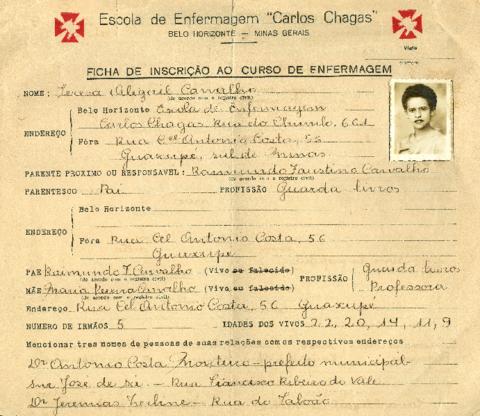 Escola de Enfermagem "Carlos Chagas"
BELO HORIZONTE — MINAS GERAIS
Visto
FICHA DE INSCRIÇÃO AO CURSO DE ENFERMAGEM
NOME: Teresa Abigail Carvalho
(de acordo com o registro civil)
ENDEREÇO
Belo Horizonte Escola de Enfermagem
Carlos Chagas Rua do Chumbo, 661
Fóra Rua Cel Antonio Costa, 56
Guaxupé, sul de Minas
PARENTE PROXIMO OU RESPONSAVEL: Raimundo Faustino Carvalho
(de acordo com o registro civil)
PARENTESCO Pai PROFISSÃO Guarda livros
ENDEREÇO
Belo Horizonte
Fóra Rua Cel Antonio Costa, 56
Guaxupé
PAE Raimundo F. Carvalho (Vivo ou falecido) PROFISSÃO Guarda livros
(de acordo com o registro civil)
MÃE Maria Pereira Carvalho (Vivo ou falecido) Professora
(de acordo com o registro civil)
Endereço Rua Cel Antonio Costa, 56 Guaxupé
NUMERO DE IRMÃOS 5 IDADES DOS VIVOS 22, 20, 14, 11, 9
Mencionar tres nomes de pessoas de suas relações com os respectivos endereços
Dr Antonio Costa Monteiro - prefeito municipal
José de Sá - Rua Francisco Ribeiro do Vale
Dr Jeremias - Rua do Taboão